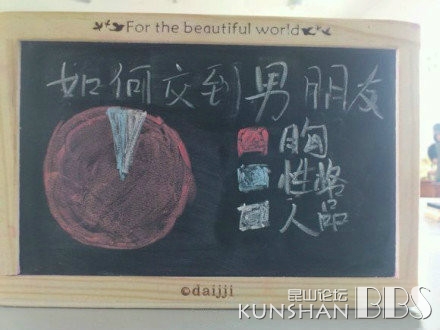 For the beautiful world
如何交到男朋友
胸
性格
人品
©daijji
昆山论坛
KUNSHAN BBS